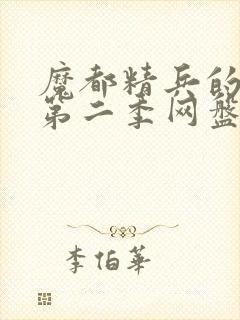 魔都精兵的
第二季网盘
李伯華